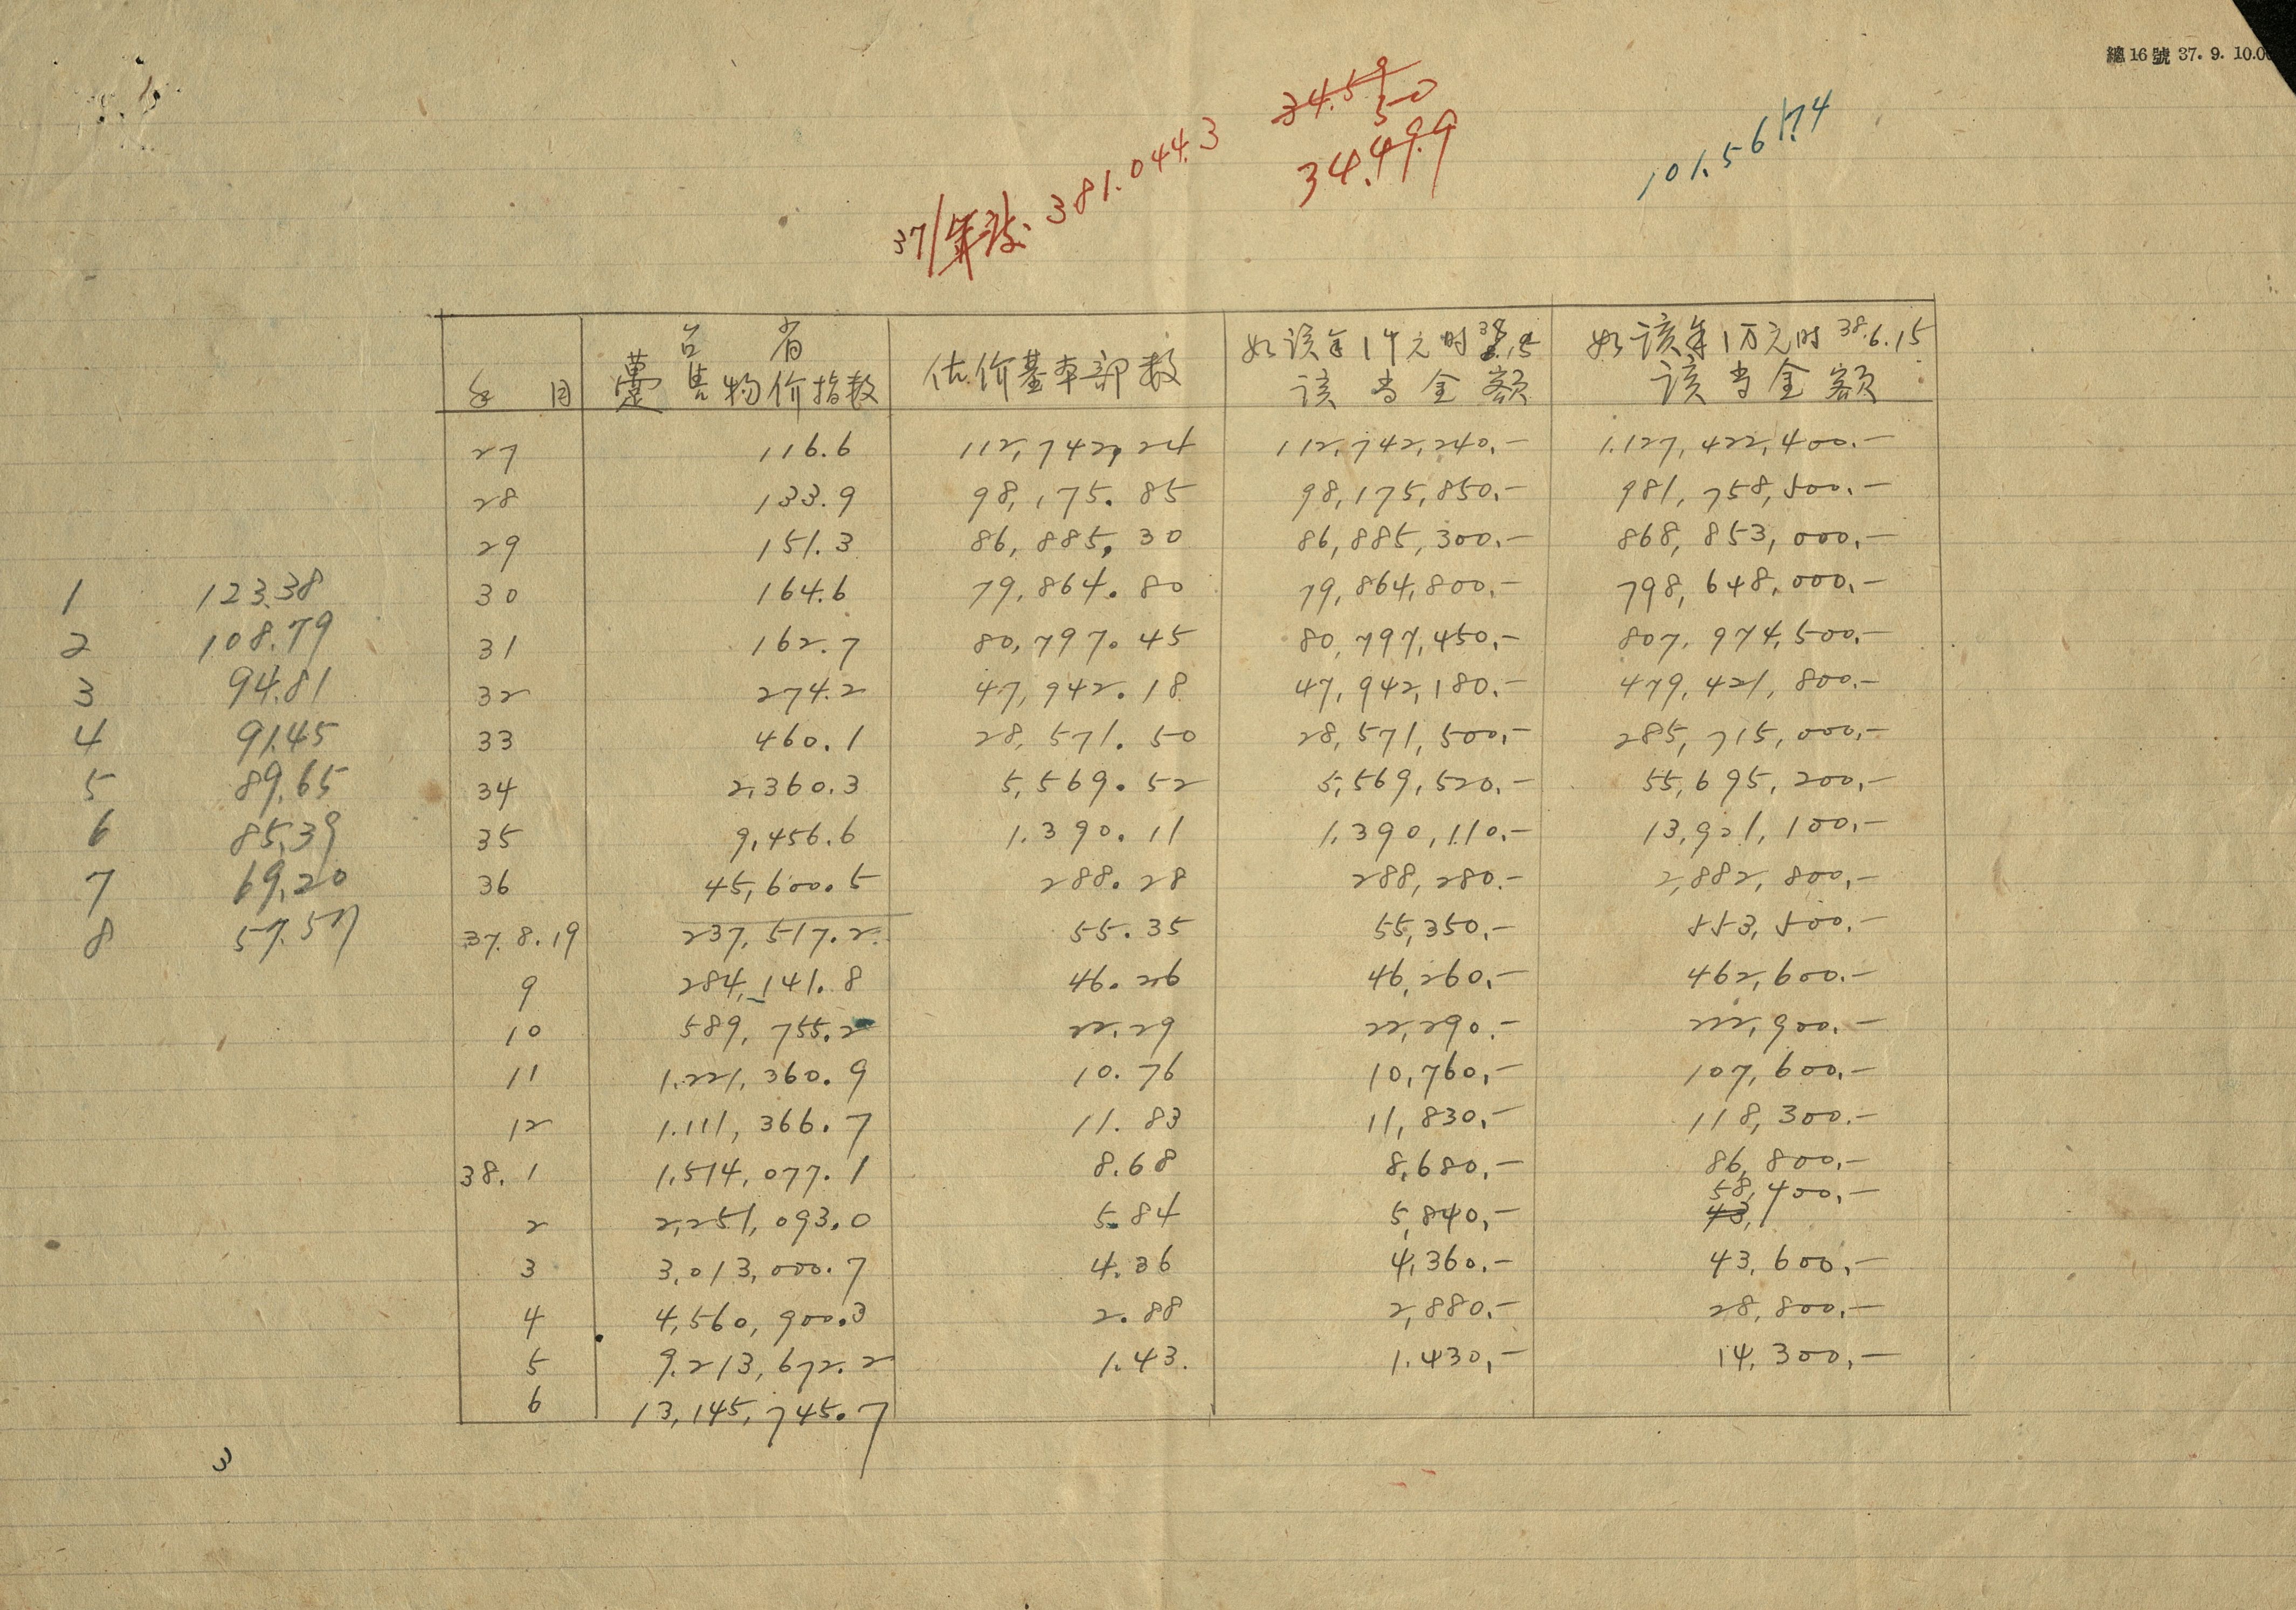 總16號 37. 9. 10.00
34.59
50
34.499
37/年 381.044.3
101.5617.4
年 月
台 省
躉售物价指数
估价基率部数
如该年1千元时 38.6.15
该当金额
如该年1万元时 38.6.15
该当金额
27 116.6 112,742,24 112,742,240.— 1.127,422,400.—
28 133.9 98,175.85 98,175,850.— 981,758,500.—
29 151.3 86,885,30 86,885,300.— 868,853,000.—
30 164.6 79,864.80 79,864,800.— 798,648,000.—
31 162.7 80,797.45 80,797,450.— 807,974,500.—
32 274.2 47,942.18 47,942,180.— 479,421,800.—
33 460.1 28,571.50 28,571,500.— 285,715,000.—
34 2,360.3 5,569.52 5,569,520.— 55,695,200.—
35 9,456.6 1.390.11 1,390,110.— 13,921,100.—
36 45,600.5 288.28 288,280.— 2,882,800.—
37.8.19 237,517.2 55.35 55,350.— 553,500.—
9 284,141.8 46.26 46,260.— 462,600.—
10 589,755.2 22.29 22,290.— 222,900.—
11 1.221,360.9 10.76 10,760.— 107,600.—
12 1.111,366.7 11.83 11,830.— 118,300.—
38.1 1,514,077.1 8.68 8,680.— 86,800.—
2 2,251,093.0 5.84 5,840.— 58,400.—
43,
3 3,013,000.7 4.36 4,360.— 43,600.—
4 4,560,900.3 2.88 2,880.— 28,800.—
5 9.213,672.2 1.43. 1.430,— 14,300.—
6 13,145,745.7
1 123.38
2 108.79
3 94.81
4 91.45
5 89.65
6 85.39
7 69.20
8 57.57
3